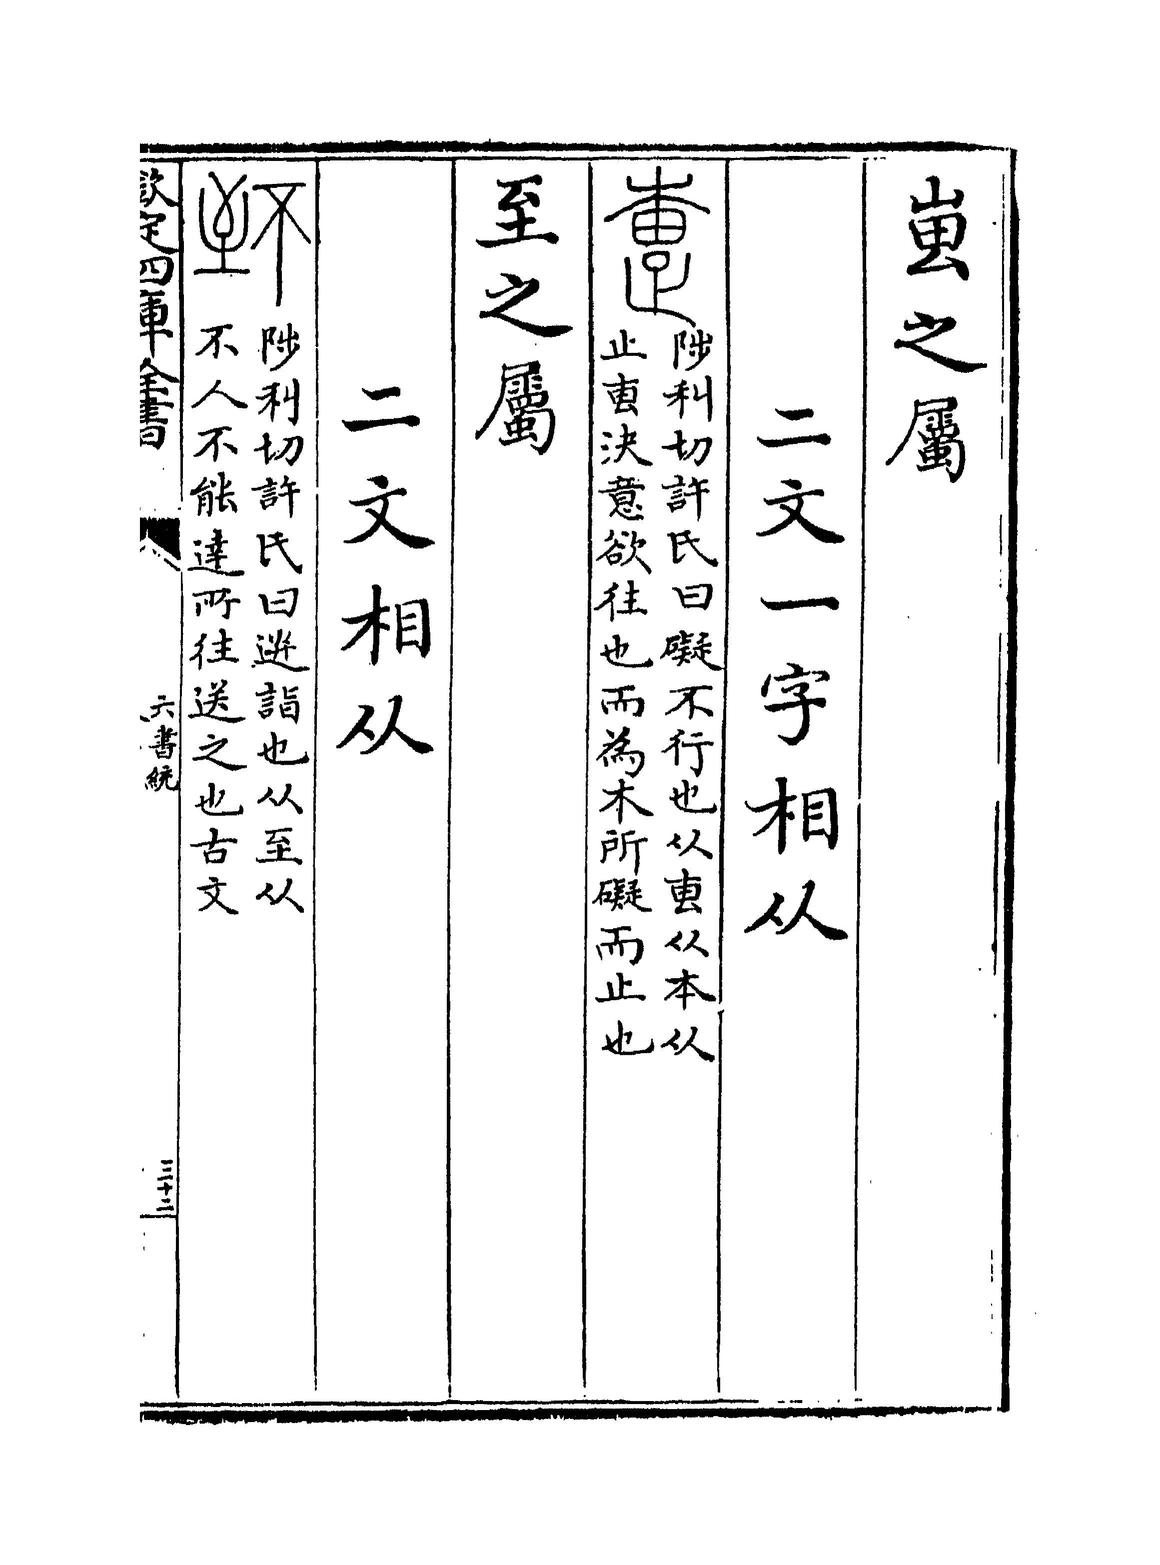 之屬
二文一字相从
疐
陟利切許氏曰礙不行也从叀从本从
止叀決意欲往也而為木所礙而止也
至之屬
二文相从
陟利切許氏曰詣也从至从
不人不能達所往送之也古文
欽定四庫全書
六書統
三十二